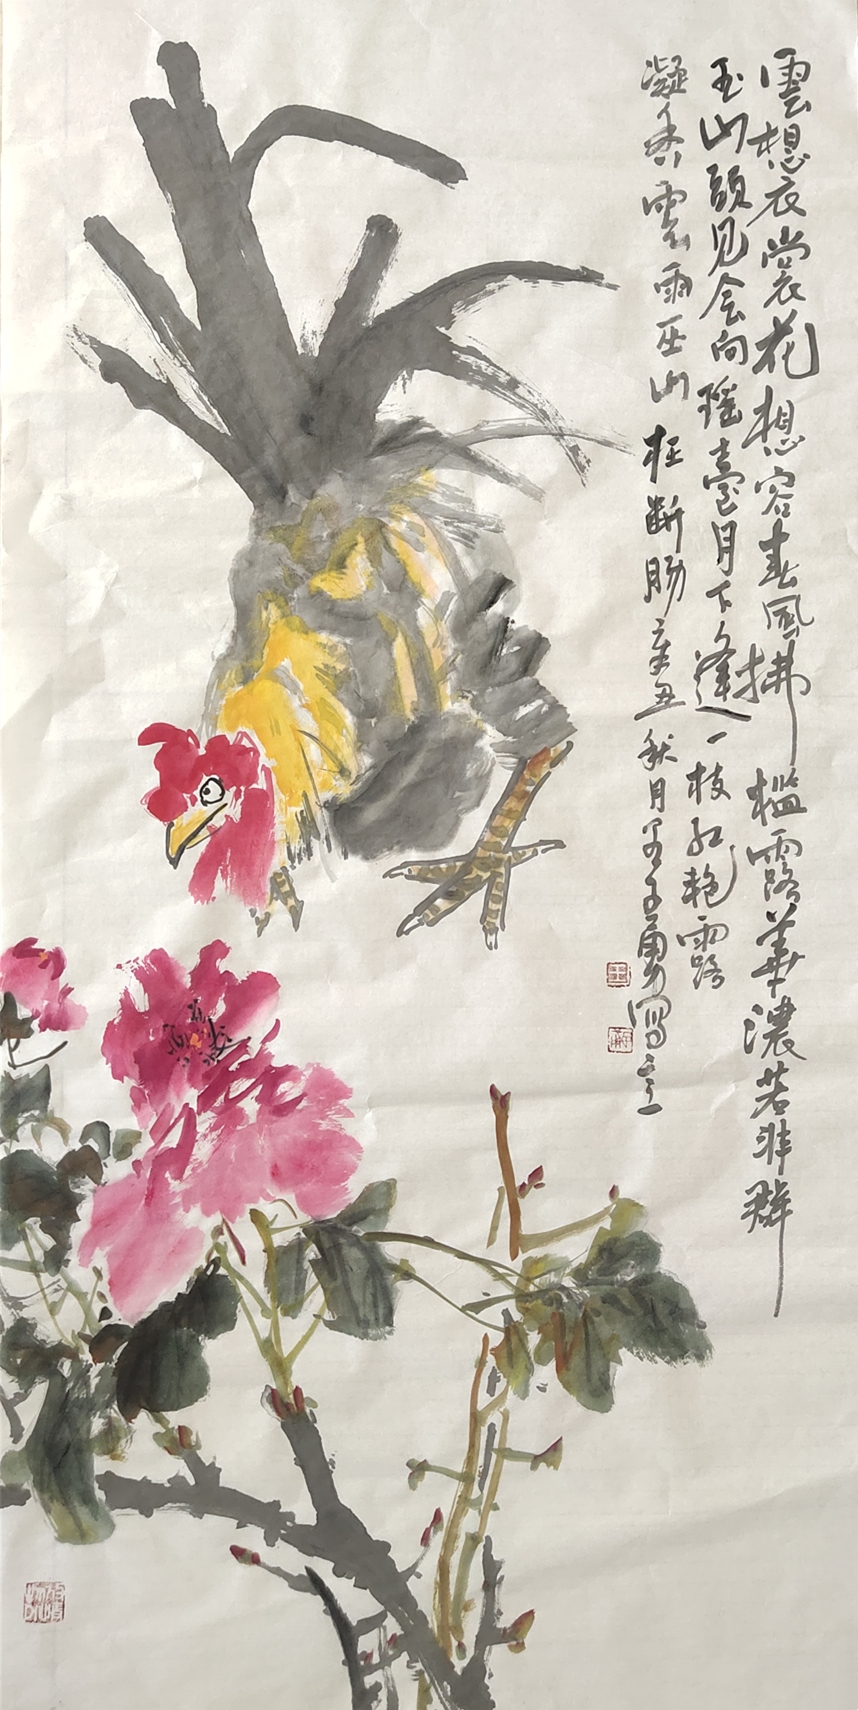 雲想衣裳花想容春風拂檻露華濃若非群
玉山頭見会向瑤臺月下逢一枝紅艳露
凝香雲雨巫山枉断肠辛丑秋月王勇寫意